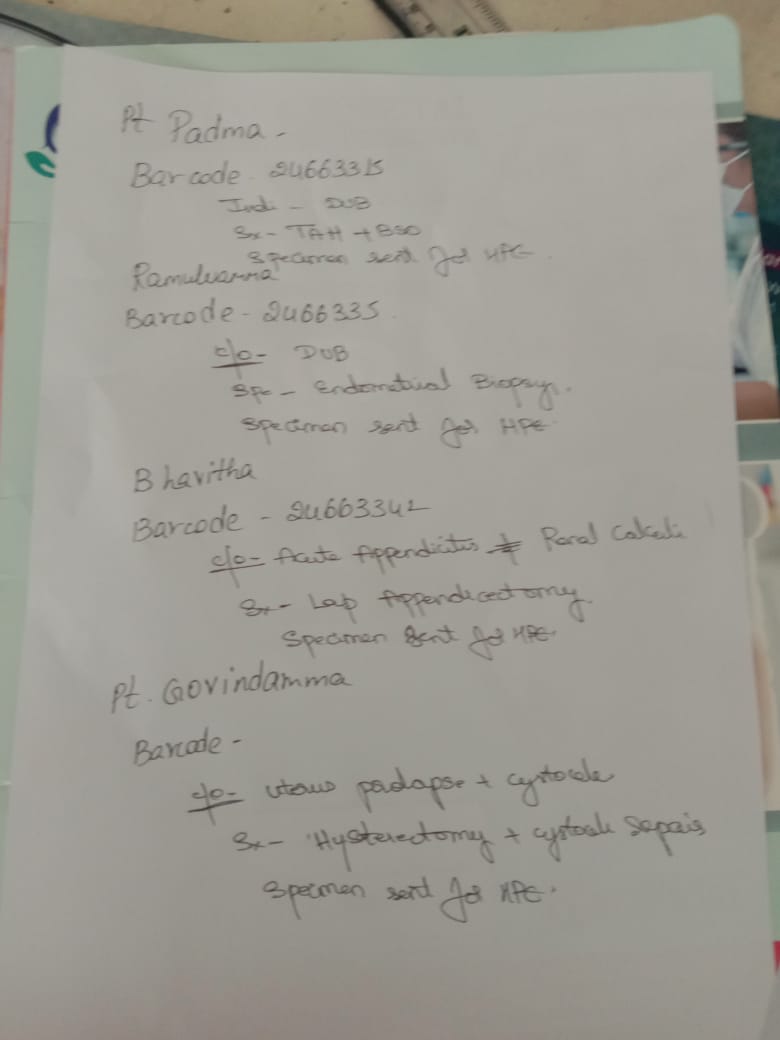 Pt Padma -
Barcode - 24663315
Indi - DUB
Sx - TAH + BSO
Specimen sent for HPE.
Ramulvamma
Barcode - 2466335.
c/o - DUB
Spc - Endometrial Biopsy.
Specimen sent for HPE.
Bhavitha
Barcode - 24663342
c/o - Acute Appendicitis + Renal Calculi
Sx - Lap Appendicectomy.
Specimen sent for HPE.
Pt. Govindamma
Barcode -
c/o - uterus prolapse + cystocele
Sx - Hysterectomy + cystocele repair
Specimen sent for HPE.